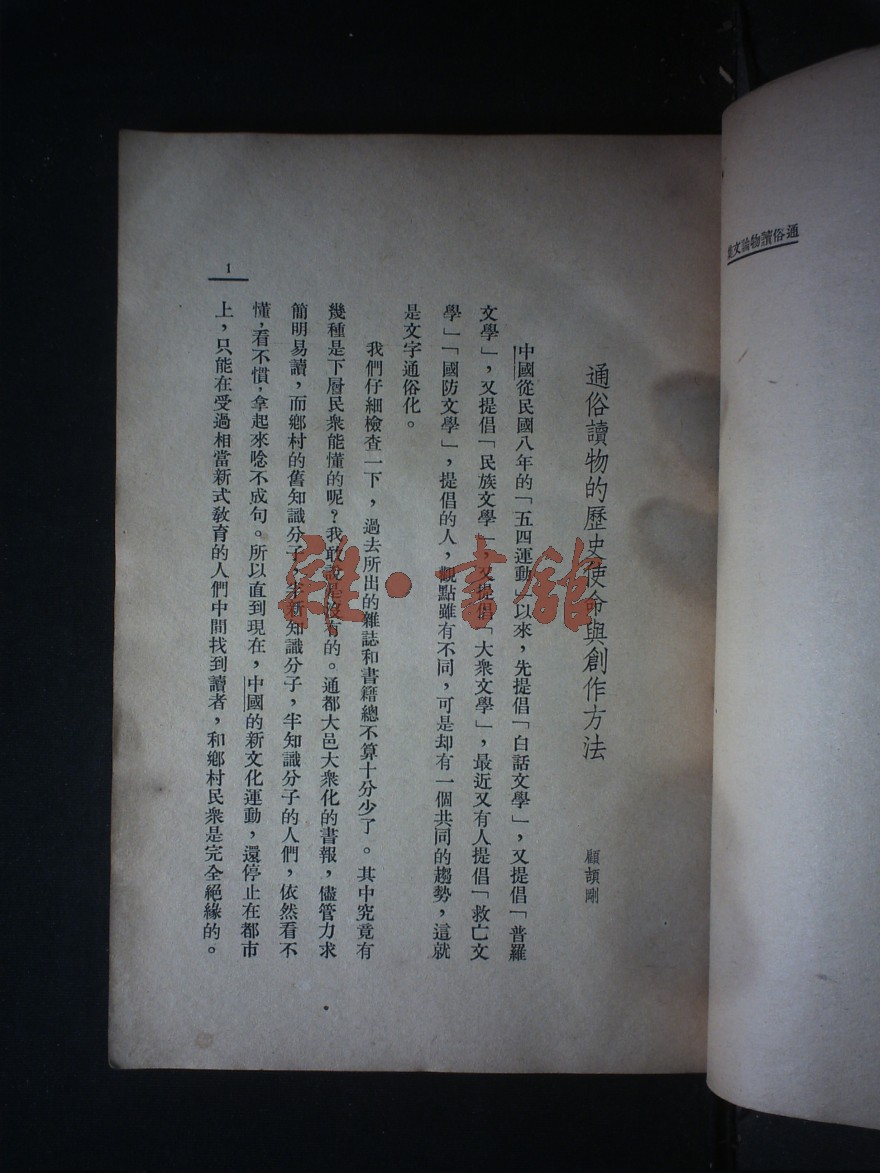 通俗讀物論文集
通俗讀物的歷史使命與創作方法
顧頡剛
中國從民國八年的「五四運動」以來，先提倡「白話文學」，又提倡「普羅
文學」，又提倡「民族文學」，又提倡「大衆文學」，最近又有人提倡「救亡文
學」「國防文學」，提倡的人，觀點雖有不同，可是却有一個共同的趨勢，這就
是文字通俗化。
我們仔細檢查一下，過去所出的雜誌和書籍總不算十分少了。其中究竟有
幾種是下層民衆能懂的呢？我敢說是沒有的。通都大邑大衆化的書報，儘管力求
簡明易讀，而鄉村的舊知識分子，半新知識分子，半知識分子的人們，依然看不
懂，看不慣，拿起來唸不成句。所以直到現在，中國的新文化運動，還停止在都市
上，只能在受過相當新式敎育的人們中間找到讀者，和鄉村民衆是完全絕緣的。
1
雜·書館